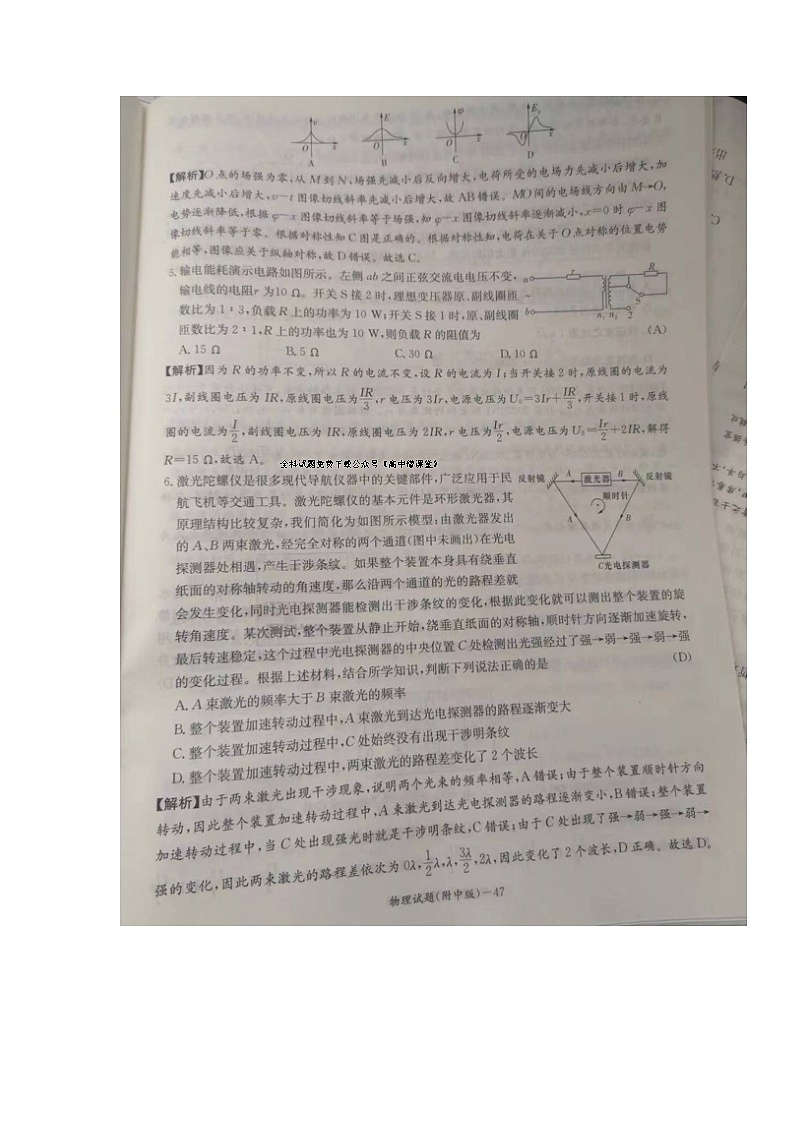 v E φ Eₚ
O x O x O x O x
A B C D
【解析】O点的场强为零,从M到N,场强先减小后反向增大,电荷所受的电场力先减小后增大,加
速度先减小后增大,v—t图像切线斜率先减小后增大,故AB错误。MO间的电场线方向由M→O,
电势逐渐降低,根据φ—x图像切线斜率等于场强,知φ—x图像切线斜率逐渐减小,x=0时φ—x图
像切线斜率等于零。根据对称性知C图是正确的。根据对称性知,电荷在关于O点对称的位置电势
能相等,图像应关于纵轴对称,故D错误。故选C。
5.输电能耗演示电路如图所示。左侧ab之间正弦交流电电压不变,
输电线的电阻r为10 Ω。开关S接2时,理想变压器原、副线圈匝
数比为1∶3,负载R上的功率为10 W;开关S接1时,原、副线圈
匝数比为2∶1,R上的功率也为10 W,则负载R的阻值为 (A)
a r R
~ S
b n₁ n₂ 1 2
A. 15 Ω B. 5 Ω C. 30 Ω D. 10 Ω
【解析】因为R的功率不变,所以R的电流不变,设R的电流为I;当开关接2时,原线圈的电流为
3I,副线圈电压为IR,原线圈电压为IR/3,r电压为3Ir,电源电压为U₀=3Ir+IR/3,开关接1时,原线
圈的电流为I/2,副线圈电压为IR,原线圈电压为2IR,r电压为Ir/2,电源电压为U₀=Ir/2+2IR,解得
R=15 Ω,故选A。
全科试题免费下载公众号《高中僧课堂》
6.激光陀螺仪是很多现代导航仪器中的关键部件,广泛应用于民
航飞机等交通工具。激光陀螺仪的基本元件是环形激光器,其
原理结构比较复杂,我们简化为如图所示模型:由激光器发出
的A、B两束激光,经完全对称的两个通道(图中未画出)在光电
探测器处相遇,产生干涉条纹。如果整个装置本身具有绕垂直
纸面的对称轴转动的角速度,那么沿两个通道的光的路程差就
反射镜 A 激光器 B 反射镜
顺时针
A B
C光电探测器
会发生变化,同时光电探测器能检测出干涉条纹的变化,根据此变化就可以测出整个装置的旋
转角速度。某次测试,整个装置从静止开始,绕垂直纸面的对称轴,顺时针方向逐渐加速旋转,
最后转速稳定,这个过程中光电探测器的中央位置C处检测出光强经过了强→弱→强→弱→强
的变化过程。根据上述材料,结合所学知识,判断下列说法正确的是 (D)
A. A束激光的频率大于B束激光的频率
B. 整个装置加速转动过程中,A束激光到达光电探测器的路程逐渐变大
C. 整个装置加速转动过程中,C处始终没有出现干涉明条纹
D. 整个装置加速转动过程中,两束激光的路程差变化了2个波长
【解析】由于两束激光出现干涉现象,说明两个光束的频率相等,A错误;由于整个装置顺时针方向
转动,因此整个装置加速转动过程中,A束激光到达光电探测器的路程逐渐变小,B错误;整个装置
加速转动过程中,当C处出现强光时就是干涉明条纹,C错误;由于C处出现了强→弱→强→弱→
强的变化,因此两束激光的路程差依次为0λ,1/2λ,λ,3λ/2,2λ,因此变化了2个波长,D正确。故选D。
物理试题(附中版)—47